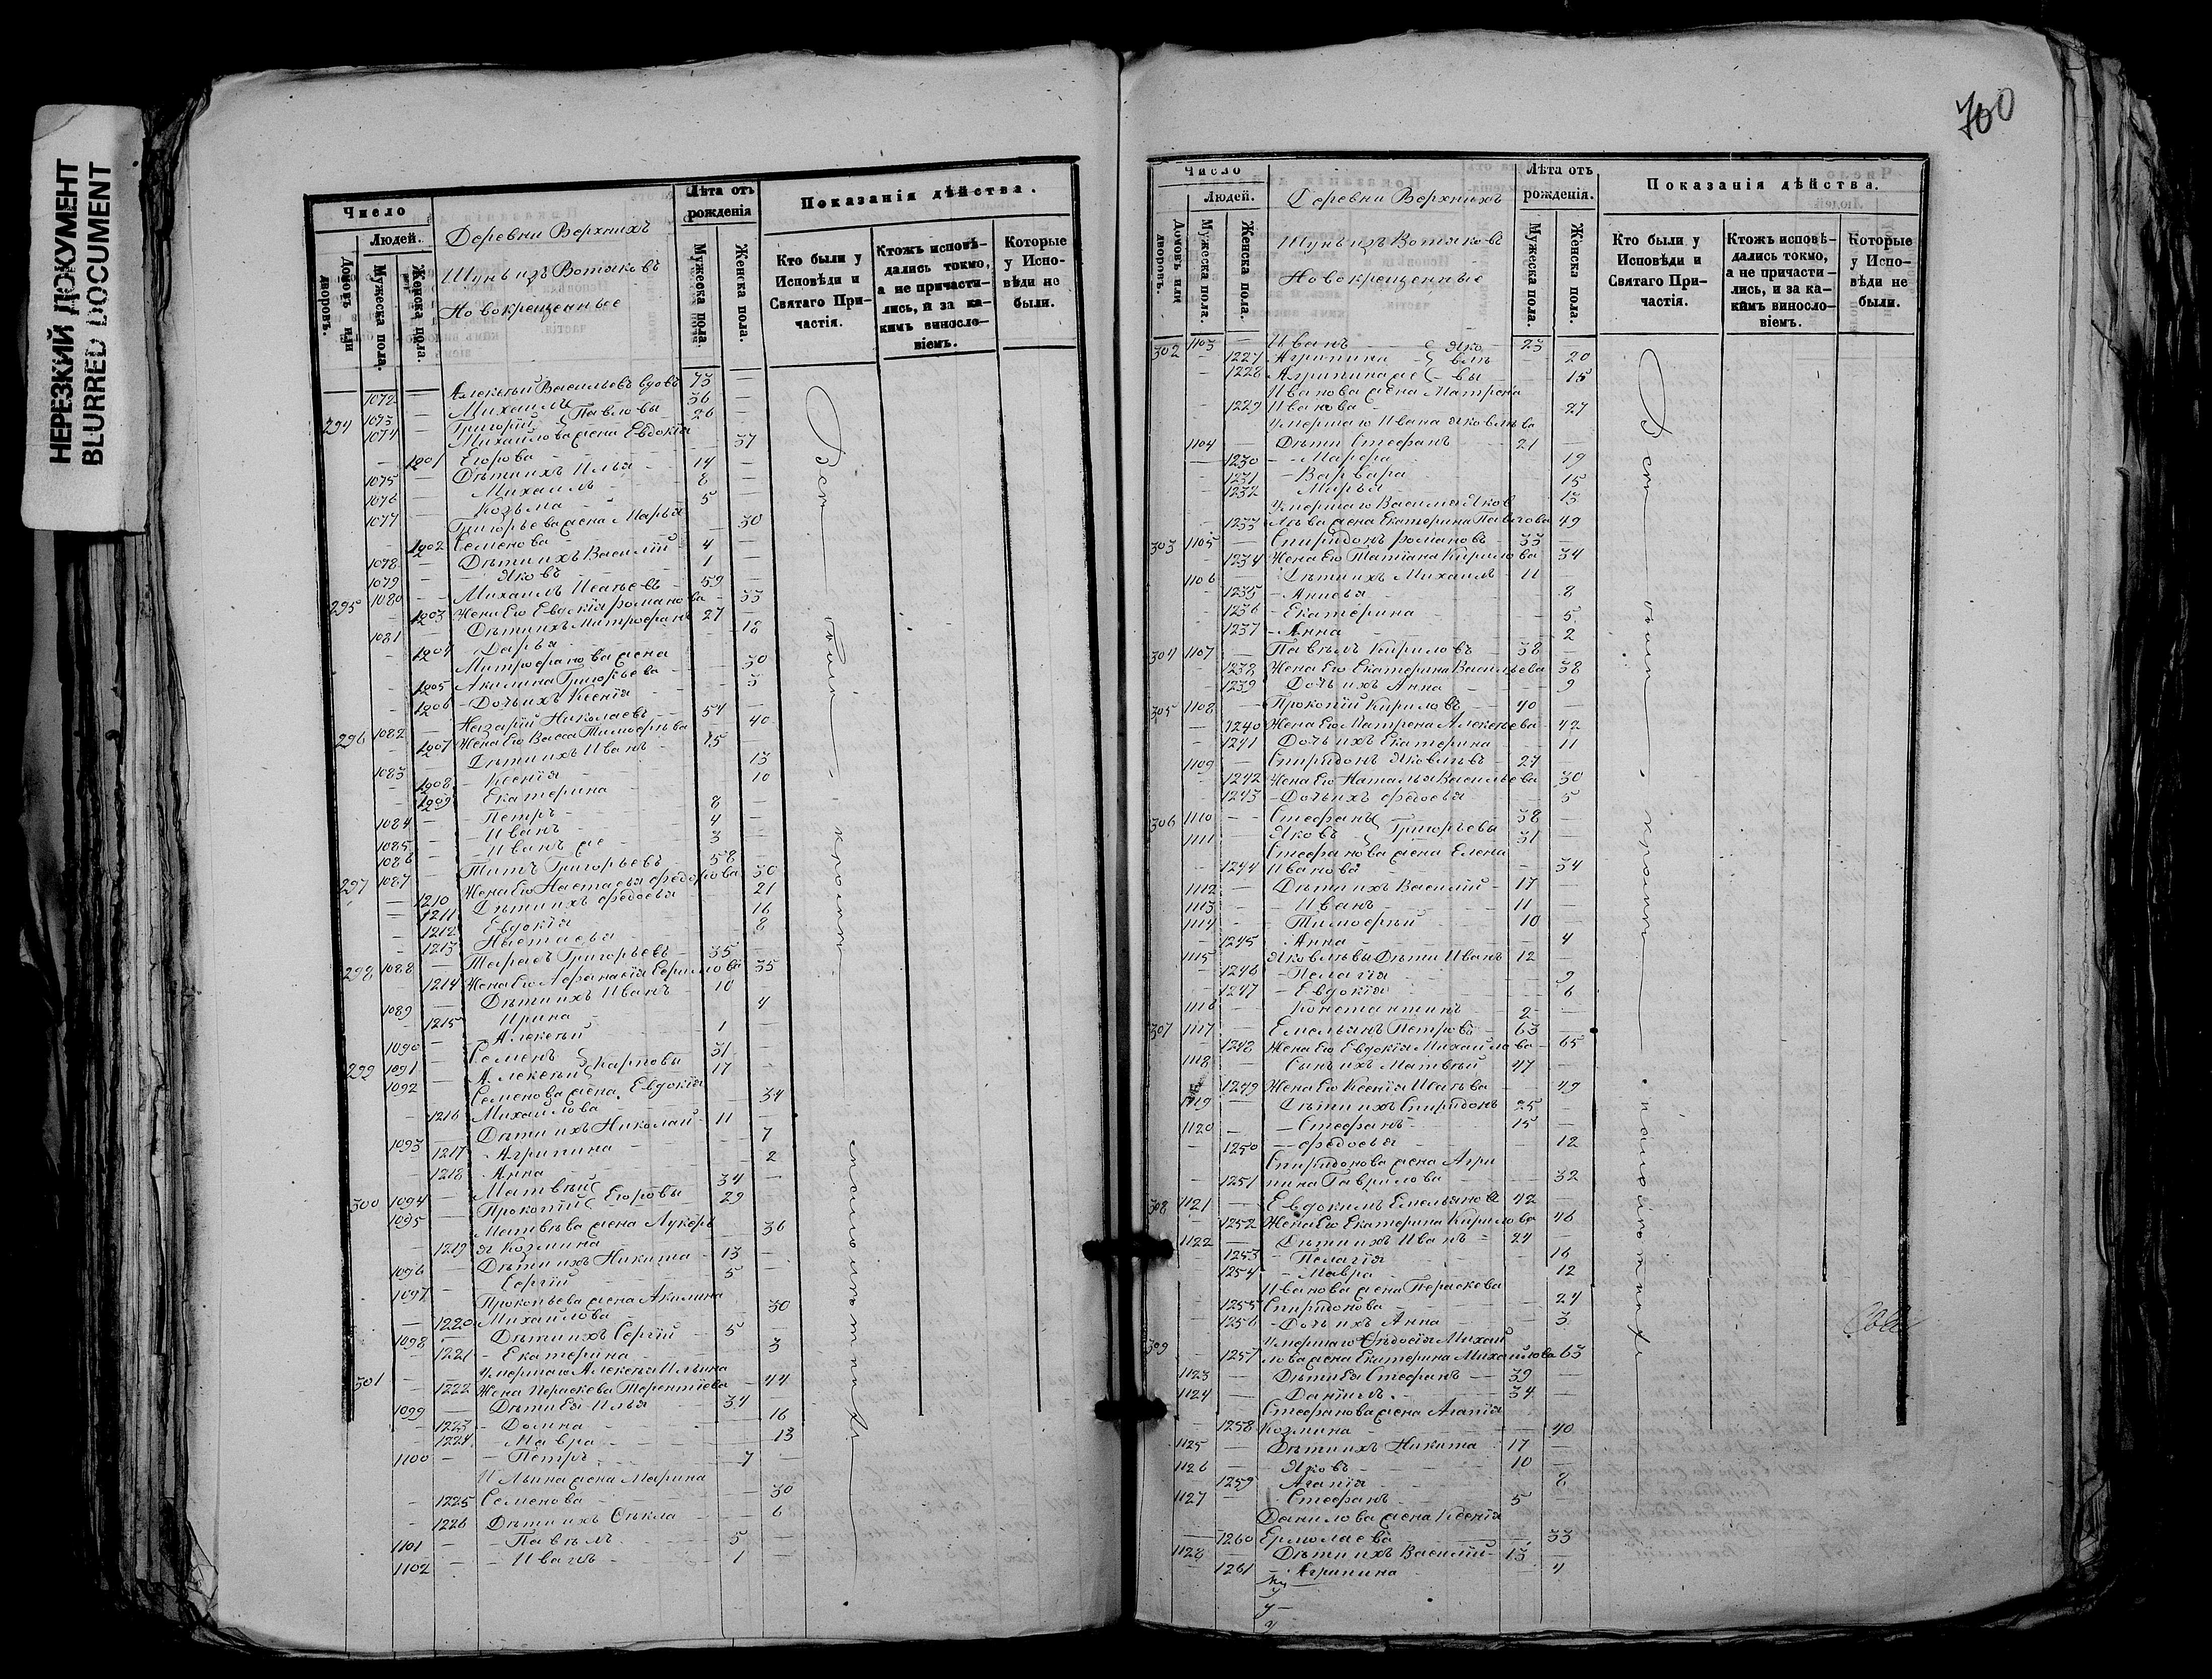 НЕРЕЗКИЙ ДОКУМЕНТ
BLURRED DOCUMENT
Число
Людей.
Домовъ или дворовъ.
Мужеска пола.
Женска пола.
Деревни Верхнихъ
Шунь изъ Вотяковъ
Новокрещенные
Лѣта отъ рожденія
Мужеска пола.
Женска пола.
Показанія дѣйства.
Кто были у Исповѣди и Святаго Причастія.
Ктожъ исповѣдались токмо, а не причастились, и за какимъ винословіемъ.
Которые у Исповѣди не были.
1072 — Алексѣй Васильевъ вдовъ 73 —
294 1073 — Михаилъ } Павловы 36 —
1074 — Григорій 26 —
Михайлова жена Евдокія
— 1201 Егорова — 37
1075 — Дѣти ихъ Илья 14 —
1076 — Михаилъ 8 —
1077 — Козьма 5 —
Григорьева жена Марья
— 1202 Семенова — 30
1078 — Дѣти ихъ Василій 4 —
1079 — Яковъ 1 —
295 1080 — Михаилъ Исаевъ 59 —
— 1203 Жена Его Евдокія Романова — 53
1081 — Дѣти ихъ Митрофанъ 27 —
— 1204 Дарья — 18
Митрофанова жена
— 1205 Акилина Григорьева — 30
— 1206 Дочь ихъ Ксенія — 3
296 1082 — Назарій Николаевъ 54 —
— 1207 Жена Его Васса Тимофѣева — 40
1083 — Дѣти ихъ Иванъ 15 —
— 1208 Ксенія — 13
— 1209 Екатерина — 10
1084 — Петръ 8 —
1085 — Иванъ 4 —
1086 — Иванъ же 3 —
297 1087 — Титъ Григорьевъ 58 —
— 1210 Жена Его Настасья Федорова — 50
— 1211 Дѣти ихъ Федосья — 21
— 1212 Евдокія — 16
— 1213 Настасья — 8
298 1088 — Тарасъ Григорьевъ 35 —
— 1214 Жена Его Афанасія Кирилова — 35
1089 — Дѣти ихъ Иванъ 10 —
— 1215 Ирина — 4
1090 — Алексѣй 1 —
299 1091 — Семенъ } Карповы 31 —
1092 — Алексѣй 17 —
Семенова жена Евдокія
— 1216 Михайлова — 34
1093 — Дѣти ихъ Николай 11 —
— 1217 Агрипина — 7
— 1218 Анна — 2
300 1094 — Матвѣй } Егоровы 34 —
1095 — Прокопій 29 —
Матвѣева жена Лукерь
— 1219 я Козмина — 36
1096 — Дѣти ихъ Никита 13 —
1097 — Сергій 5 —
Прокопьева жена Акилина
— 1220 Михайлова — 30
1098 — Дѣти ихъ Сергій 5 —
— 1221 Екатерина — 3
Умершаго Алексѣя Ильина
301 — 1222 Жена Параскева Терентіева — 44
1099 — Дѣти Ея Илья 34 —
— 1223 Домна — 16
— 1224 Мавра — 13
1100 — Петръ 7 —
Ильина жена Марина
— 1225 Семенова — 30
— 1226 Дѣти ихъ Ѳекла — 6
1101 — Павелъ 5 —
1102 — Иванъ 1 —
Всѣ были
700
Число
Людей.
Домовъ или дворовъ.
Мужеска пола.
Женска пола.
Деревни Верхнихъ
Шунь изъ Вотяковъ
Новокрещенные
Лѣта отъ рожденія.
Мужеска пола.
Женска пола.
Показанія дѣйства.
Кто были у Исповѣди и Святаго Причастія.
Ктожъ исповѣдались токмо, а не причастились, и за какимъ винословіемъ.
Которые у Исповѣди не были.
302 1103 — Иванъ } Яко 23 —
— 1227 Агрипина } влев — 20
— 1228 Агрипина же } вы — 15
Иванова жена Матрена
— 1229 Иванова — 27
Умершаго Ивана Яковлева
1104 — Дѣти Стефанъ 21 —
— 1230 Марфа — 19
— 1231 Варвара — 15
— 1232 Марья — 13
Умершаго Василья Яков
— 1233 лева жена Екатерина Павлова 49
303 1105 — Спиридонъ Романовъ 33 —
— 1234 Жена Его Татіана Кирилова — 34
1106 — Дѣти ихъ Михаилъ 11 —
— 1235 Анисья — 8
— 1236 Екатерина — 5
— 1237 Анна — 2
304 1107 — Павелъ Кириловъ 38 —
— 1238 Жена Его Екатерина Васильева 38
— 1239 Дочь ихъ Анна — 9
305 1108 — Прокопій Кириловъ 40 —
— 1240 Жена Его Матрена Алексѣева 42
— 1241 Дочь ихъ Екатерина — 11
1109 — Спиридонъ Яковлевъ 27 —
— 1242 Жена Его Наталья Васильева 30
— 1243 Дочь ихъ Федосья — 5
306 1110 — Стефанъ } Григорьевы 38 —
1111 Яковъ 31 —
Стефанова жена Елена
— 1244 Иванова — 34
1112 — Дѣти ихъ Василій 17 —
1113 — Иванъ 11 —
1114 — Тимофѣй 10 —
— 1245 Анна — 4
1115 Яковлевы Дѣти Иванъ 12 —
— 1246 Пелагія — 9
— 1247 Евдокія — 6
1116 — Константинъ 2 —
307 1117 — Емельянъ Петровъ 63 —
— 1248 Жена Его Евдокія Михайлова — 65
1118 — Сынъ ихъ Матвѣй 47 —
— 1249 Жена Его Ксенія Исаева — 49
1119 — Дѣти ихъ Спиридонъ 25 —
1120 — Стефанъ 15 —
— 1250 Федосья — 12
Спиридонова жена Агри
— 1251 пина Гаврилова — 32
308 1121 — Евдокимъ Емельяновъ 42 —
— 1252 Жена Его Екатерина Кирилова 46
1122 — Дѣти ихъ Иванъ 24 —
— 1253 Пелагія — 16
— 1254 Мавра — 12
Иванова жена Параскева
— 1255 Спиридонова — 24
— 1256 Дочь ихъ Анна — 3
309 Умершаго Ѳедосія Михай
— 1257 лова жена Екатерина Михайлова 63
1123 — Дѣти Ея Стефанъ 39 —
1124 — Даніилъ 34 —
Стефанова жена Агапія
— 1258 Козмина — 40
1125 — Дѣти ихъ Никита 17 —
1126 — Яковъ 10 —
— 1259 Агапія — 8
1127 — Стефанъ 5 —
Данилова жена Ксенія
— 1260 Ермолаева — 33
1128 — Дѣти ихъ Василій 13 —
— 1261 Агрипина — 4
Всѣ были